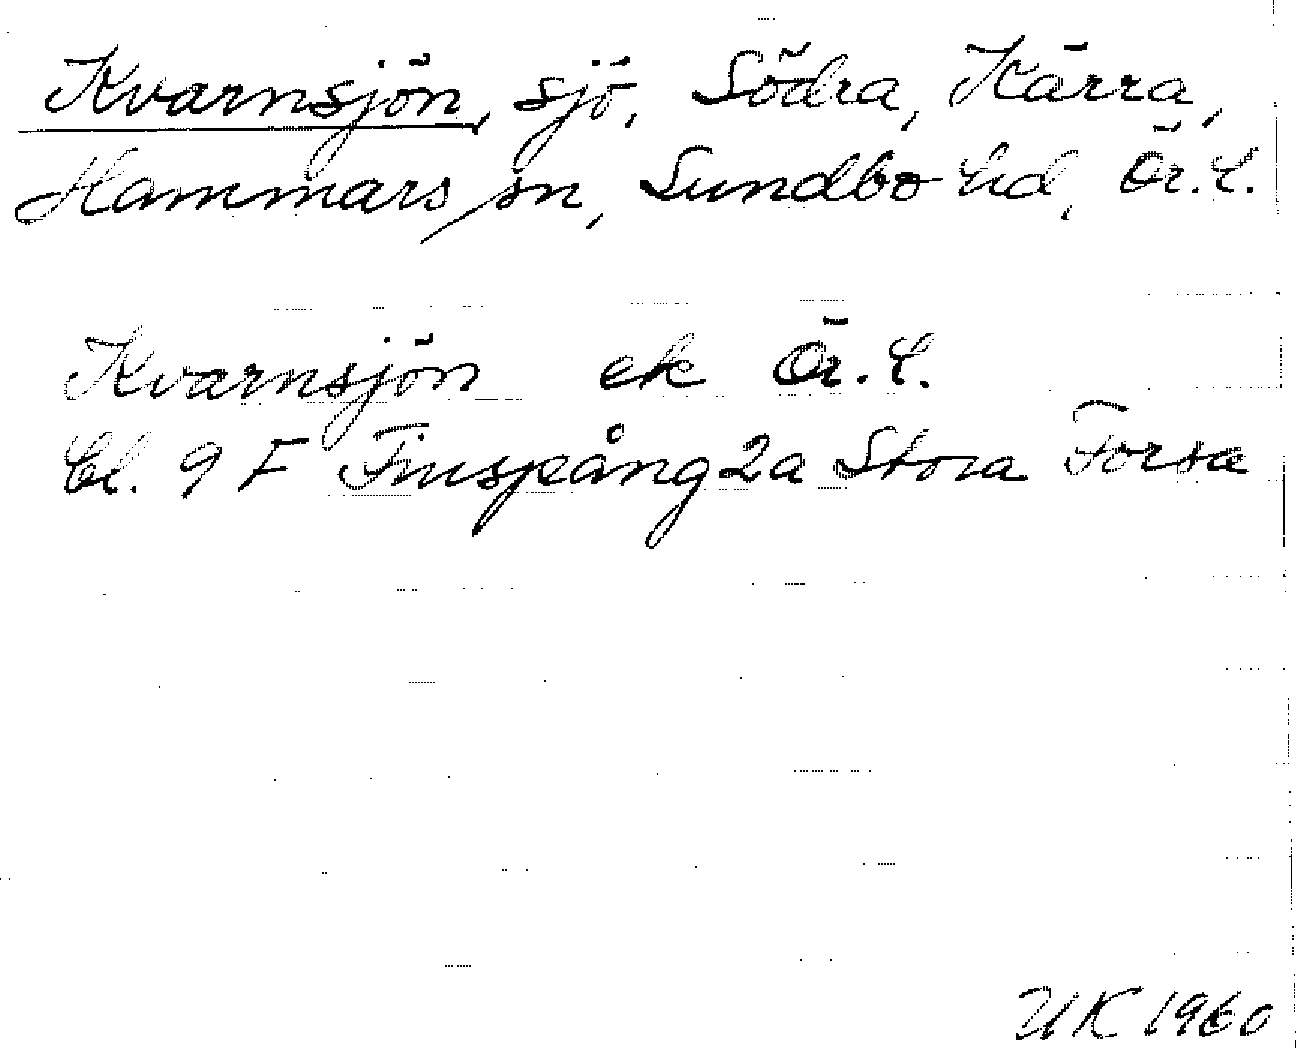 Kvarnsjön, sjö, Södra, Kärra,
Hammars sn, Sundbo hd, Ör. L.
Kvarnsjön ek Ör. L.
Bl. 9 F Finspång 2a Stora Forsa
UK 1960